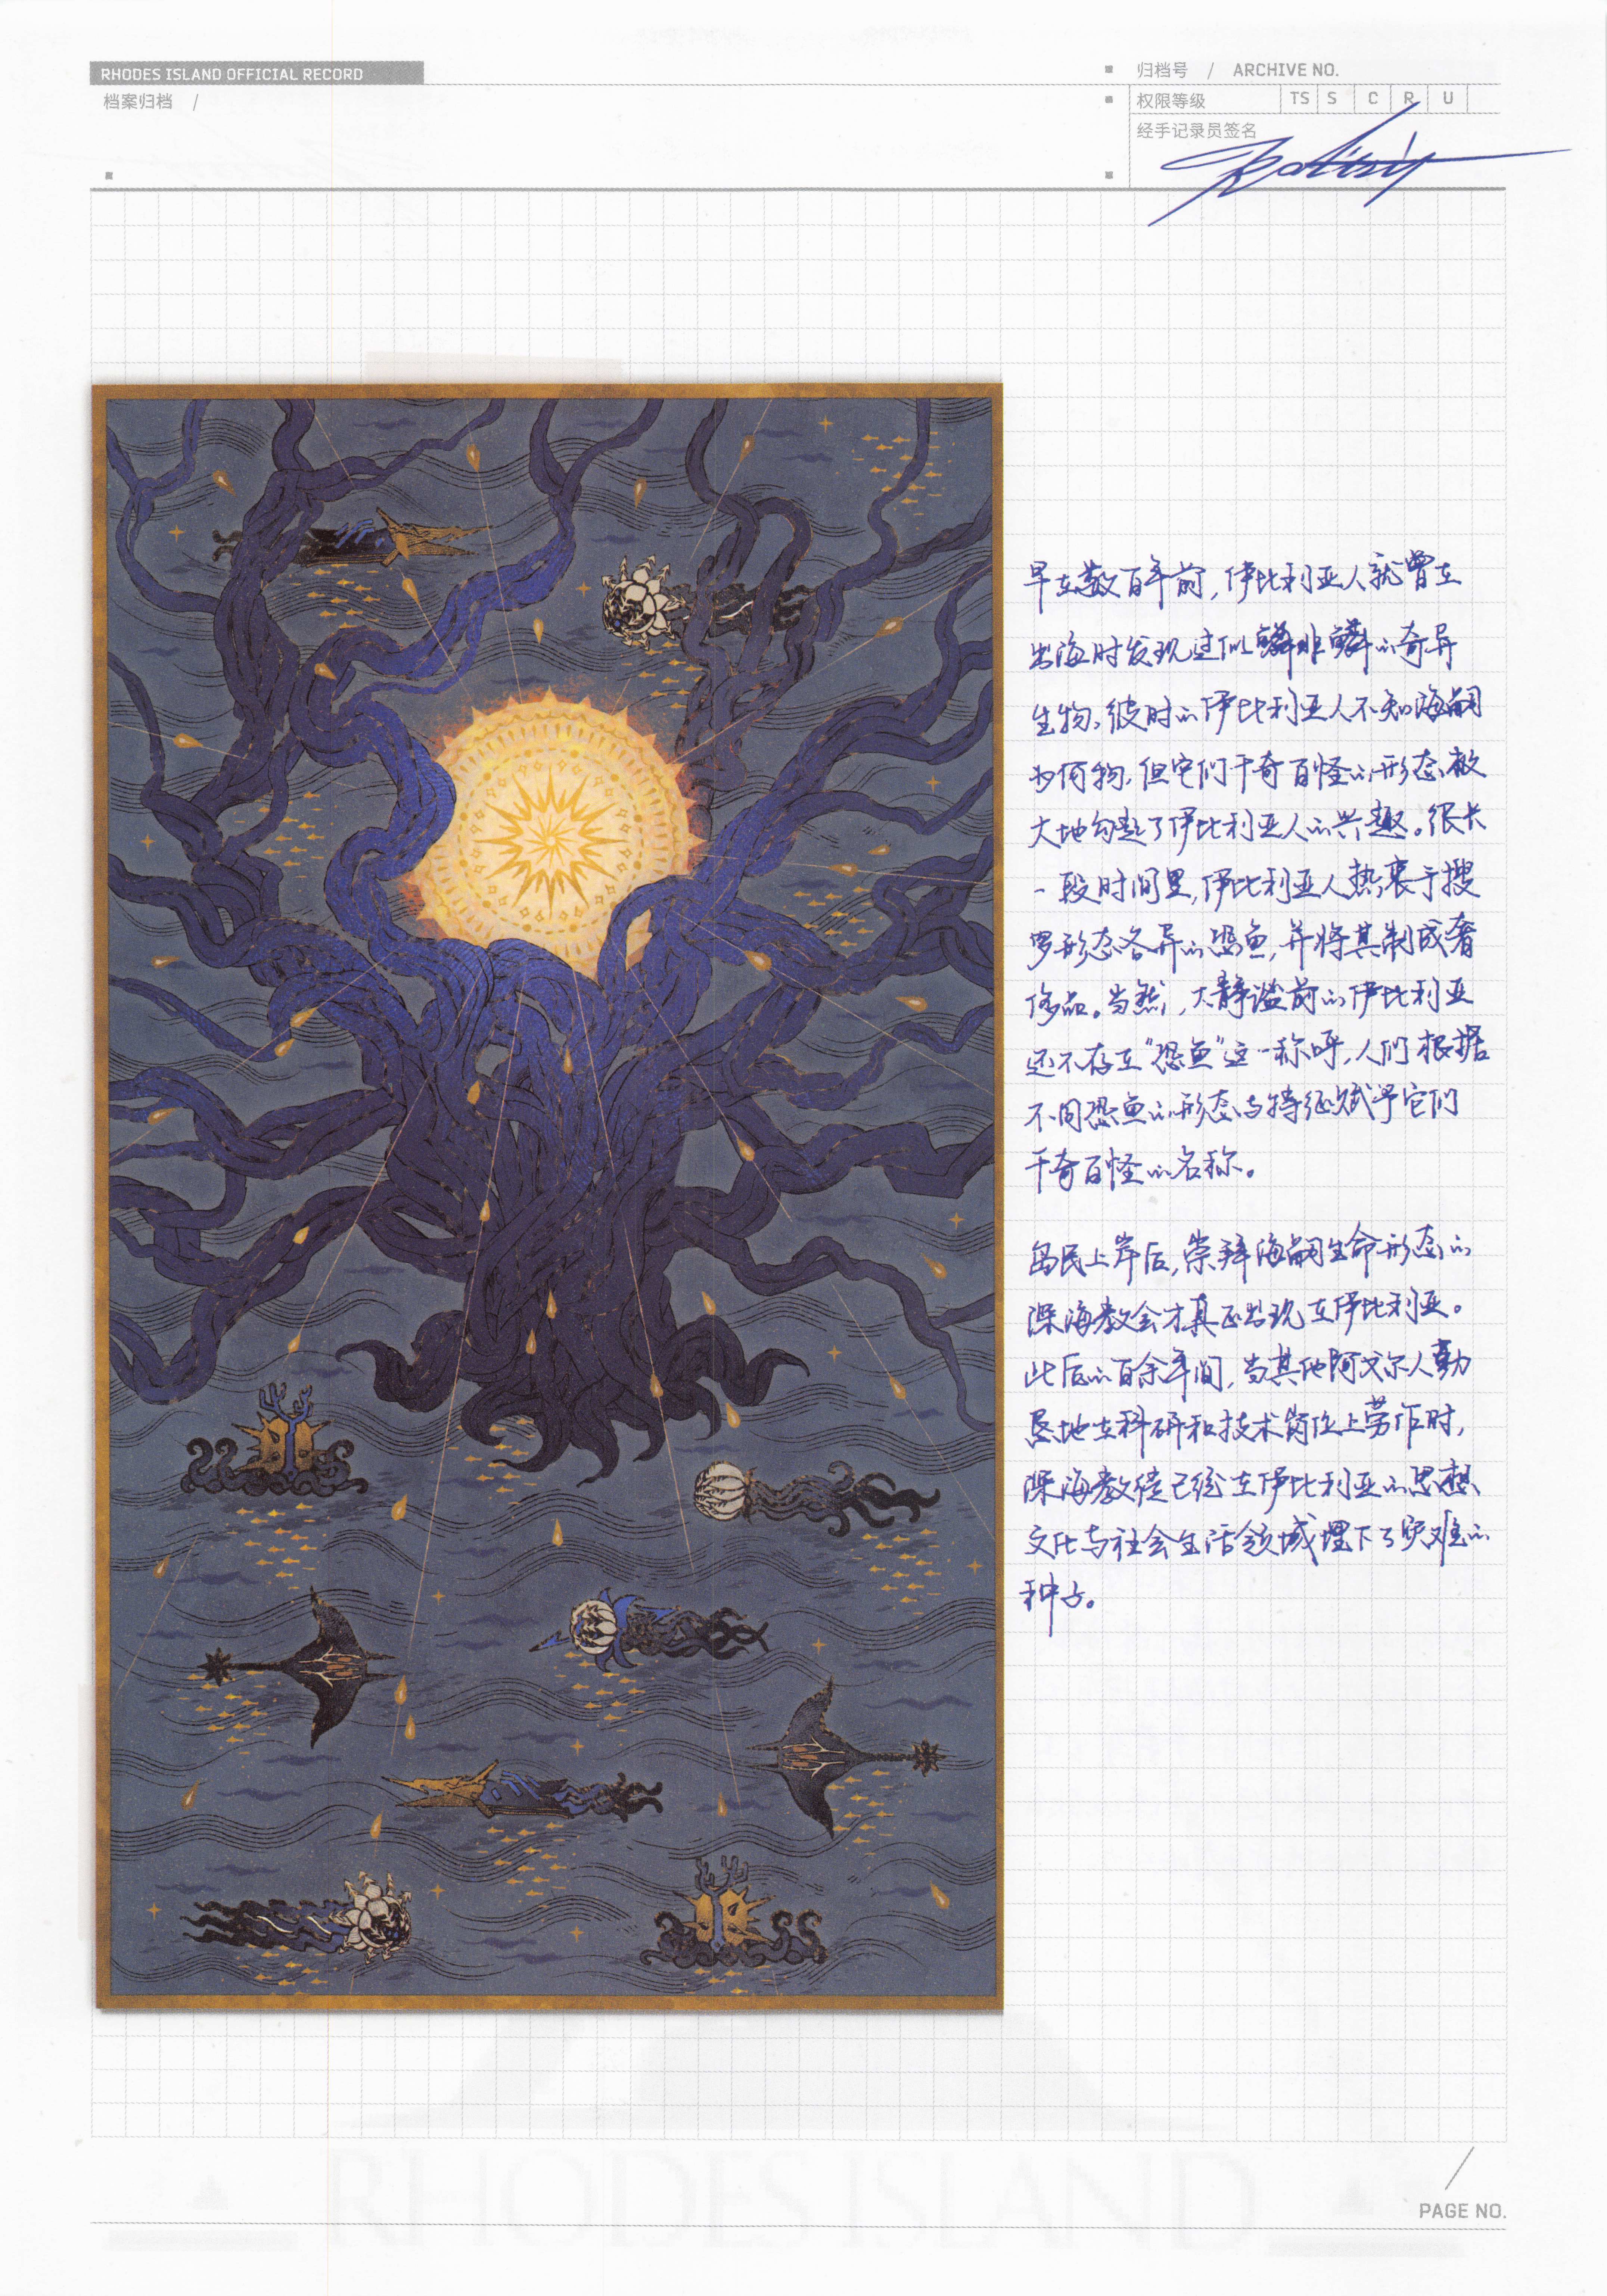 RHODES ISLAND OFFICIAL RECORD
档案归档 /
归档号 / ARCHIVE NO.
权限等级 TS S C R U
经手记录员签名
早在数百年前,伊比利亚人就曾在
出海时发现过似鳞非鳞的奇异
生物,彼时的伊比利亚人不知海嗣
为何物,但它们千奇百怪的形态极
大地勾起了伊比利亚人的兴趣。很长
一段时间里,伊比利亚人热衷于搜
罗形态各异的恐鱼,并将其制成奢
侈品。当然,大静谧前的伊比利亚
还不存在“恐鱼”这一称呼,人们根据
不同恐鱼的形态与特征赋予它们
千奇百怪的名称。
岛民上岸后,崇拜海嗣生命形态的
深海教会才真正出现在伊比利亚。
此后的百余年间,当其他阿戈尔人勤
恳地在科研和技术岗位上劳作时,
深海教徒已经在伊比利亚的思想、
文化与社会生活领域埋下了灾难的
种子。
RHODES ISLAND
PAGE NO.